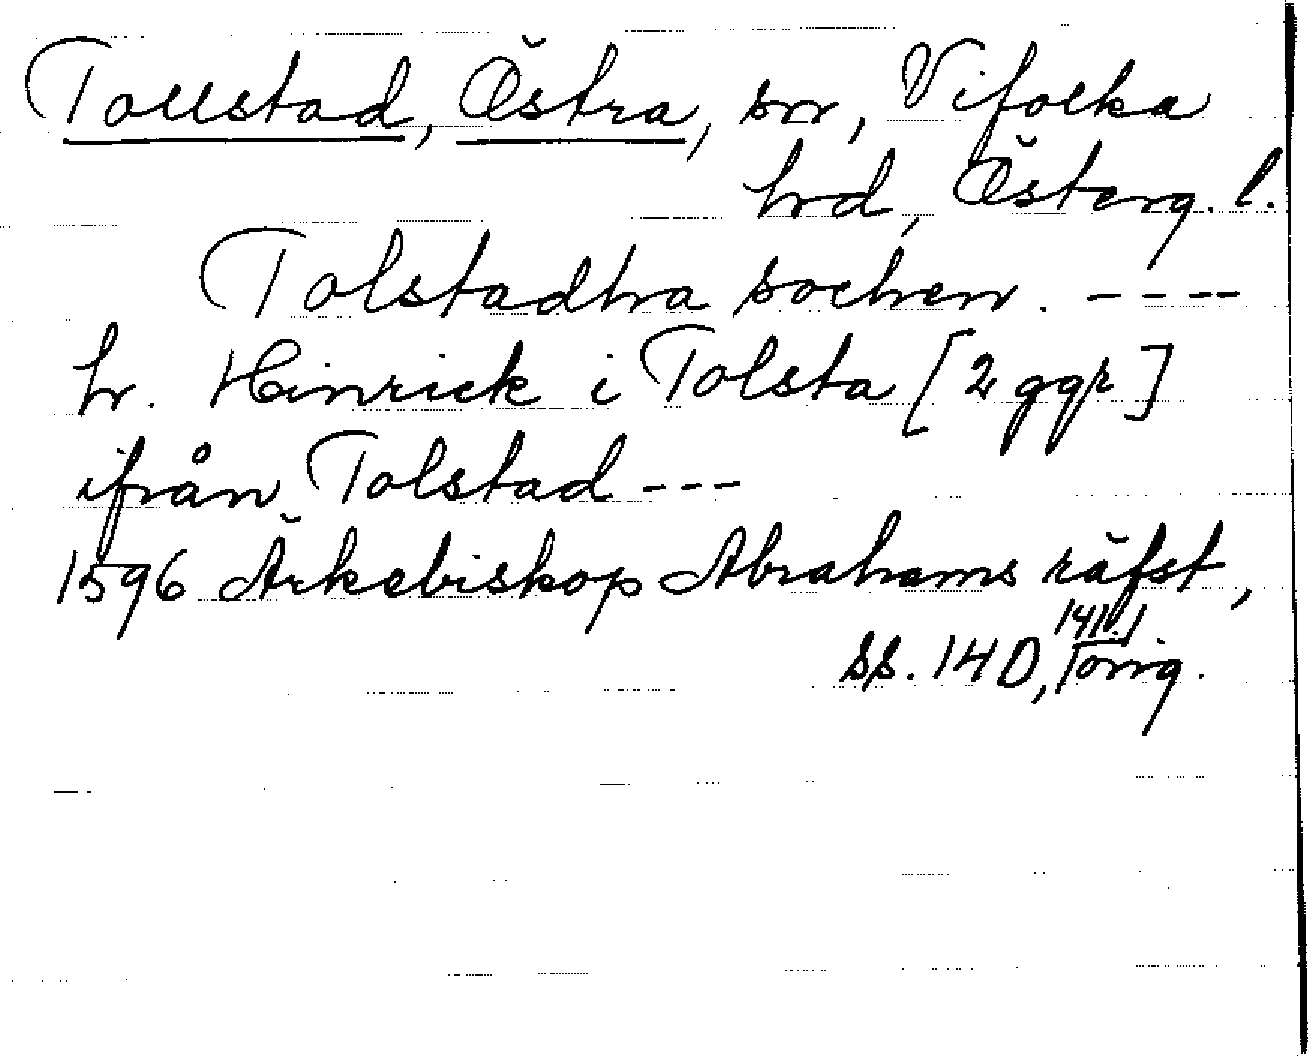 Tollstad, Östra, sn, Vifolka
hrd, Österg. l.
Tolstadha sochen. - - - -
hr. Hinrick i Tolsta [2 ggr]
ifrån Tolstad - - -
1596 Ärkebiskop Abrahams räfst,
ss. 140, 141, orig.